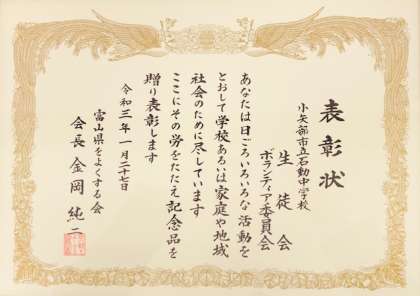 表彰状
小矢部市立石動中学校
生徒会
ボランティア委員会
あなたは日ごろいろいろな活動を
とおして学校あるいは家庭や地域
社会のために尽しています
ここにその労をたたえ記念品を
贈り表彰します
令和三年一月二十七日
富山県をよくする会
会長 金岡純二